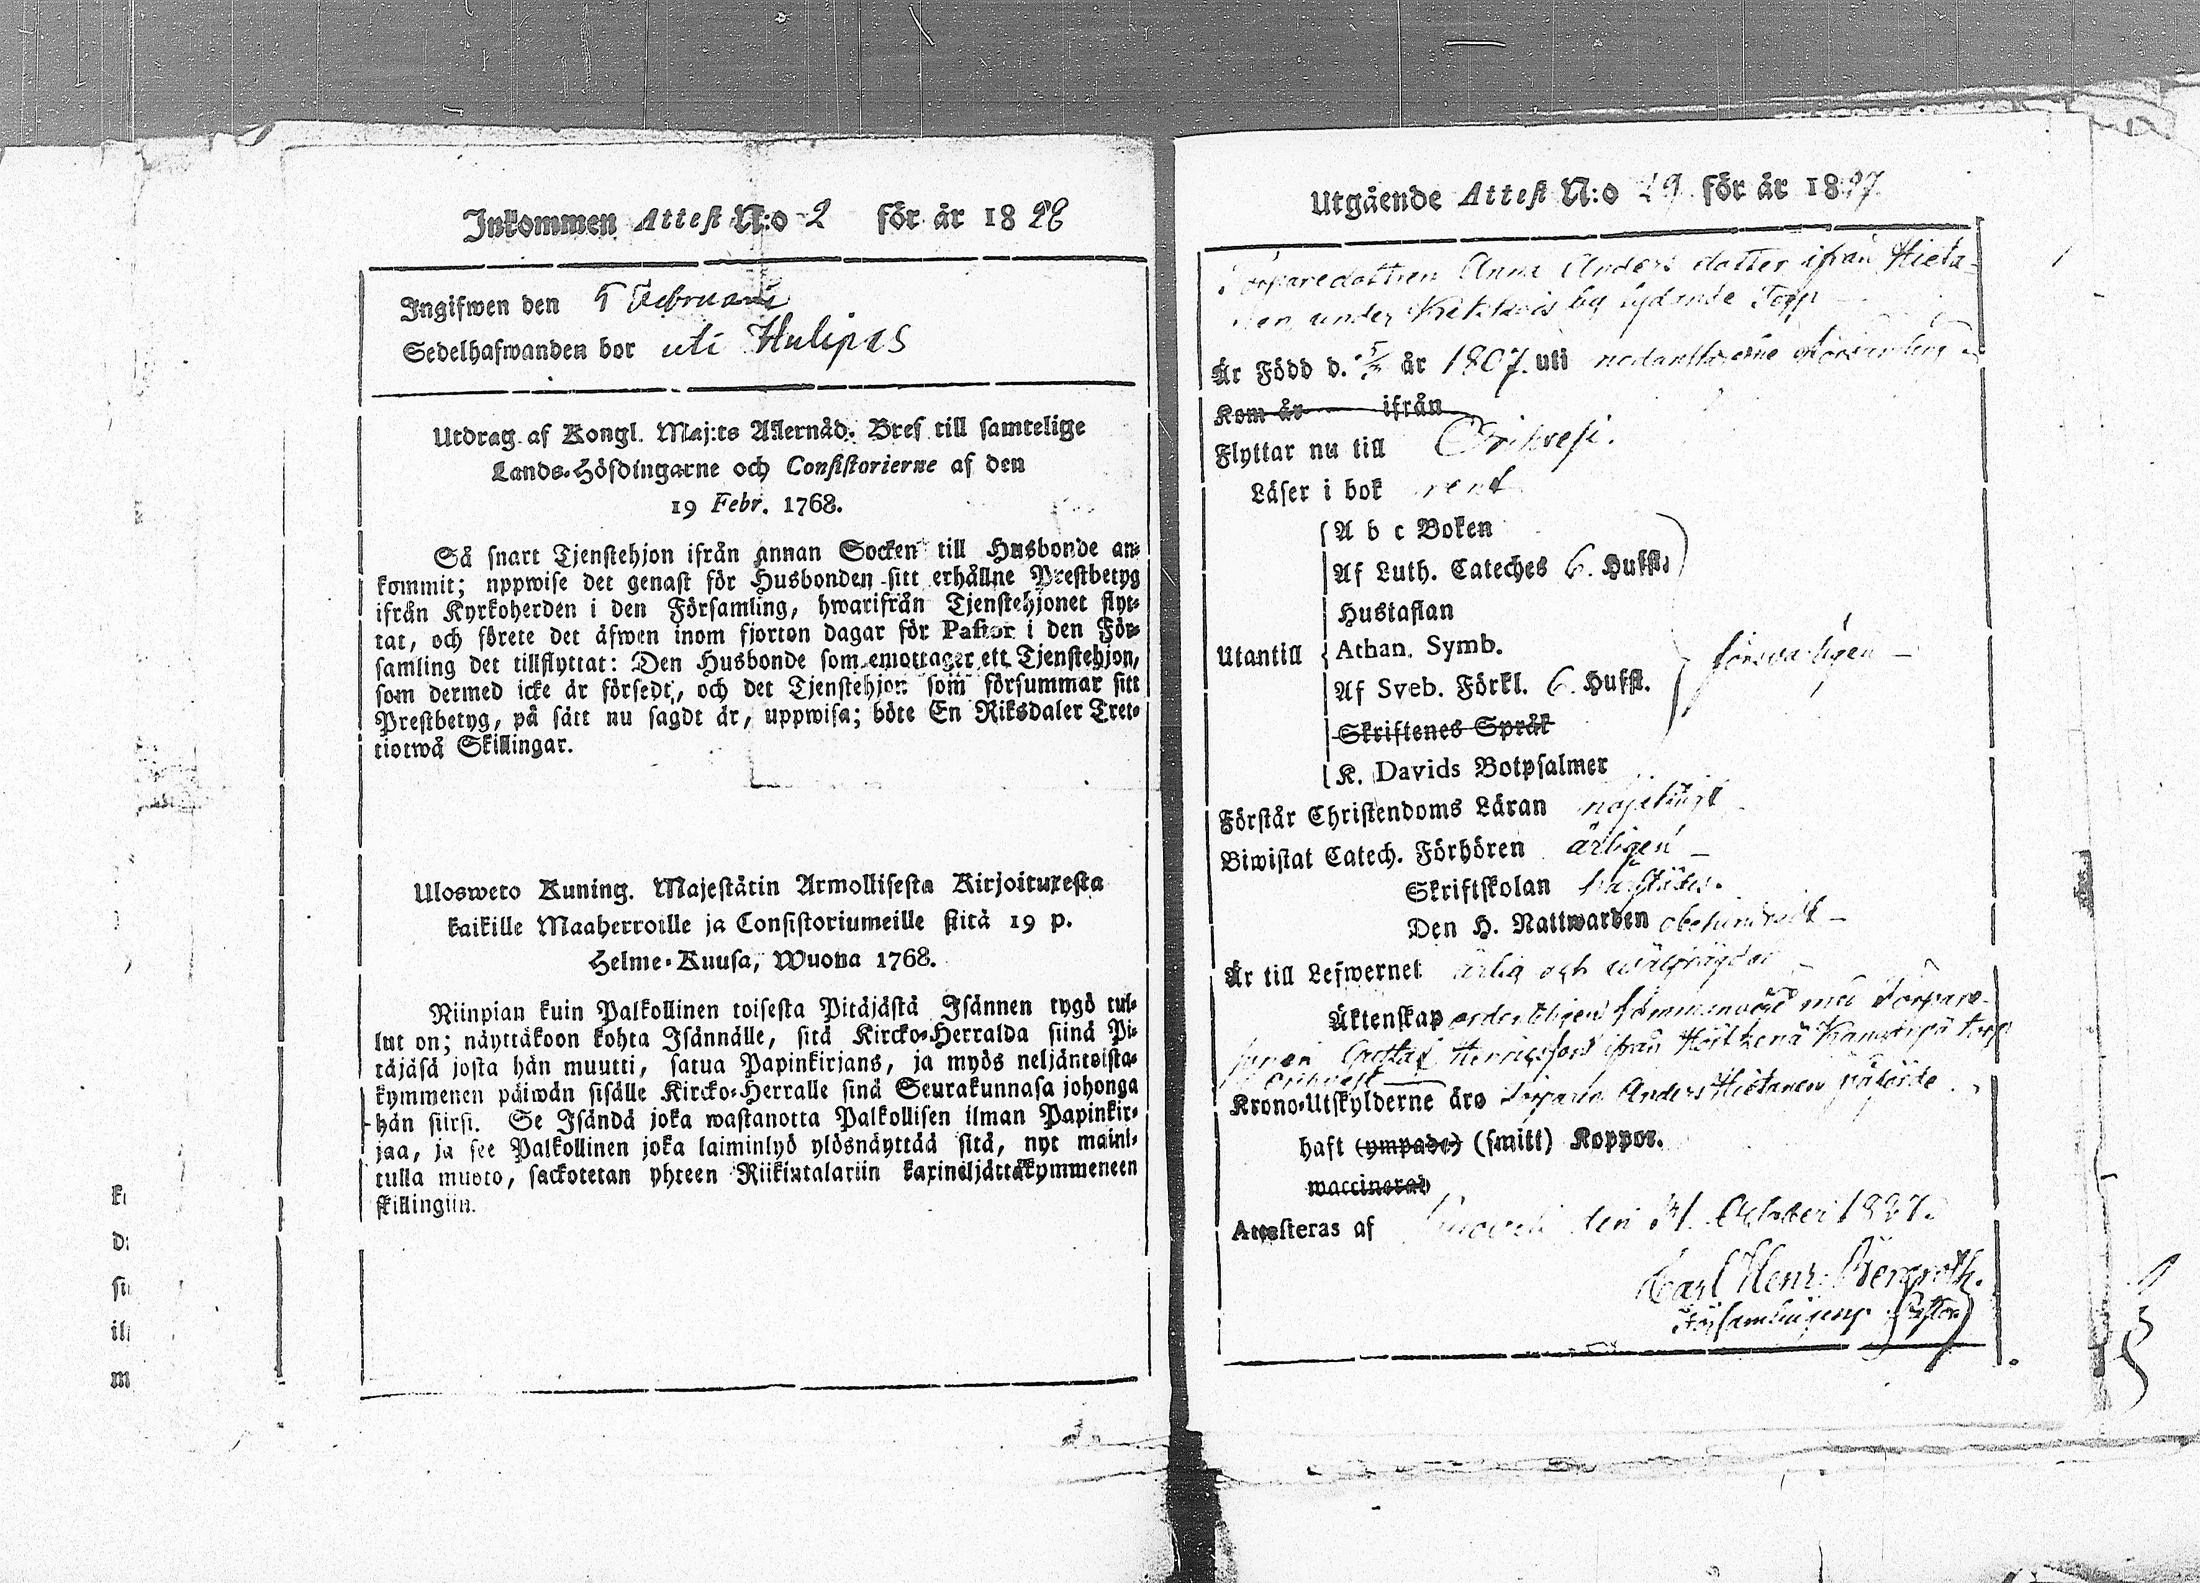 Inkommen Attest N:o 2 för år 1828
Ingifwen den 5 Februarii
Sedelhafwanden bor uti Hulipas
Utdrag af Kongl. Maj:ts Allernåd. Bref till samtelige
Lands-Höfdingarne och Consistorierne af den
19 Febr. 1768.
Så snart Tjenstehjon ifrån annan Socken till Husbonde an-
kommit; uppwise det genast för Husbonden sitt erhållne Prestbetyg
ifrån Kyrkoherden i den Församling, hwarifrån Tjenstehjonet flyt-
tat, och förete det äfwen inom fjorton dagar för Pastor i den För-
samling det tillflyttat: Den Husbonde som emottager ett Tjenstehjon,
som dermed icke är försedt, och det Tjenstehjon som försummar sitt
Prestbetyg, på sätt nu sagdt är, uppwisa; böte En Riksdaler Tret-
tiotwå Skillingar.
Ulosweto Kuning. Majestätin Armollisesta Kirjoituxesta
kaikille Maaherroille ja Consistoriumeille siitä 19 p.
Helme-Kuusa, Wuona 1768.
Niinpian kuin Palkollinen toisesta Pitäjästä Isännen tygö tul-
lut on; näyttäkoon kohta Isännälle, sitä Kircko-Herralda siinä Pi-
täjäsä josta hän muutti, saatua Papinkirjans, ja myös neljäntoista-
kymmenen päiwän sisälle Kircko-Herralle siinä Seurakunnasa johonga
hän siirsi. Se Isändä joka wastanotta Palkollisen ilman Papinkir-
jaa, ja see Palkollinen joka laiminlyö ylösnäyttää sitä, nyt maini-
tulla muoto, sackotetan yhteen Riikintalariin kaxineljättäkymmeneen
skillingiin.
Utgående Attest N:o 29 för år 1827.
Torparedottren Anna Anders dotter ifrån Hieta-
nen under by lydande Torp
Är Född d. år 1807. uti nedanskrefne Församling
Kom år ifrån
Flyttar nu till Orihvesi.
Läser i bok rent
A b c Boken
Af Luth. Cateches 6. Hufst.
Hustaflan
Utantill Athan. Symb. försvarligen
Af Sveb. Förkl. 6. Hufst.
Skriftenes Språk
K. Davids Botpsalmer
Förstår Christendoms Läran nöjaktigt
Biwistat Catech. Förhören årligen
Skriftskolan
Den H. Nattwarden obehindradt
Är till Lefwernet ärlig och wälfrägdad
Äktenskap ordenteligen sammanvigd med Torpare-
sonen Gustaf Henricsson ifrån torp
i Orihvesi
Krono-Utskylderne äro Torparen Anders Hietanen påförde
haft (ympade) (smitt) Koppor.
waccinerad
Attesteras af den 31. October 1827.
Carl Henr. Bergroth.
Församlingens Pastor